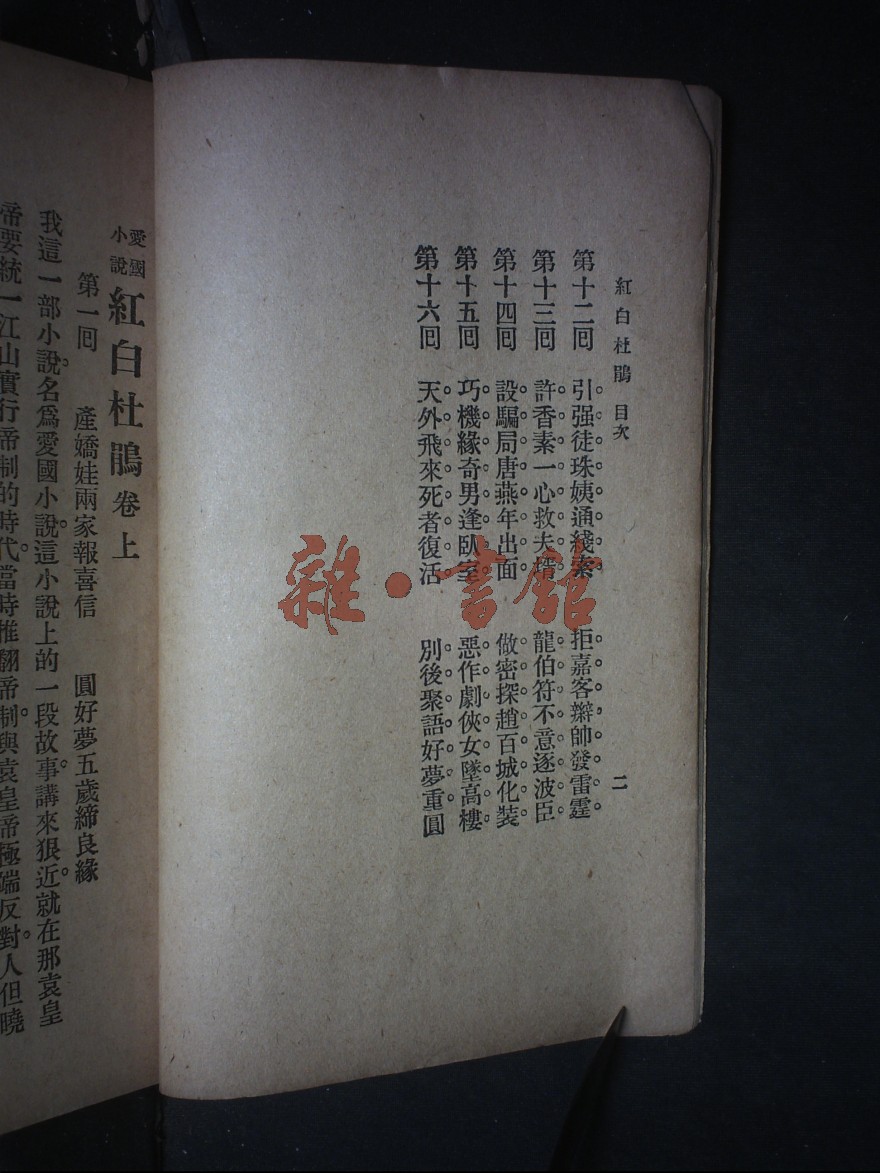 紅白杜鵑 目次 二
第十二回 引强徒珠姨通綫索 拒嘉客辮帥發雷霆
第十三回 許香素一心救夫壻 龍伯符不意逐波臣
第十四回 設騙局唐燕年出面 做密探趙百城化裝
第十五回 巧機緣奇男逢臥室 惡作劇俠女墜高樓
第十六回 天外飛來死者復活 別後聚語好夢重圓
愛國小說 紅白杜鵑 卷上
第一回 產嬌娃兩家報喜信 圓好夢五歲締良緣
我這一部小說。名爲愛國小說。這小說上的一段故事。講來狠近。就在那袁皇
帝要統一江山實行帝制的時代。當時推翻帝制。與袁皇帝極端反對。人但曉
雜·書館